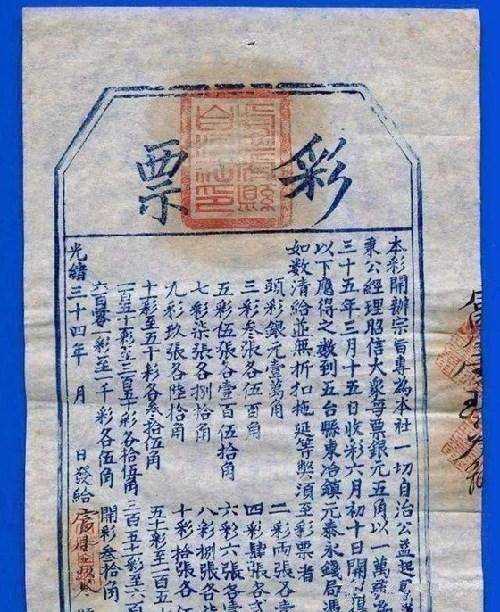 彩票
本彩開辦宗旨專為本社一切自治公益起見
秉公經理昭信大衆每票銀元五角以一萬張為
三十五年三月十五日收彩六月初十日開
以下應得之數到五台縣東冶鎮元泰永錢局憑
如數清給並無折扣拖延等弊須至彩票者
頭彩銀元壹萬角
二彩兩張各壹
三彩叁張各伍百角
四彩肆張各弍
五彩伍張各壹百伍拾角
六彩陸張各
七彩柒張各捌拾角
八彩捌張各
九彩玖張各陸拾角
十彩拾張各
十一彩至五十彩各叁拾伍角
五十一彩至一百五十
一百五十一彩至三百五十彩各拾伍角
三百五十一彩至六百
六百零一彩至一千彩各伍角
開彩叁拾
光緒三十四年 月 日發給